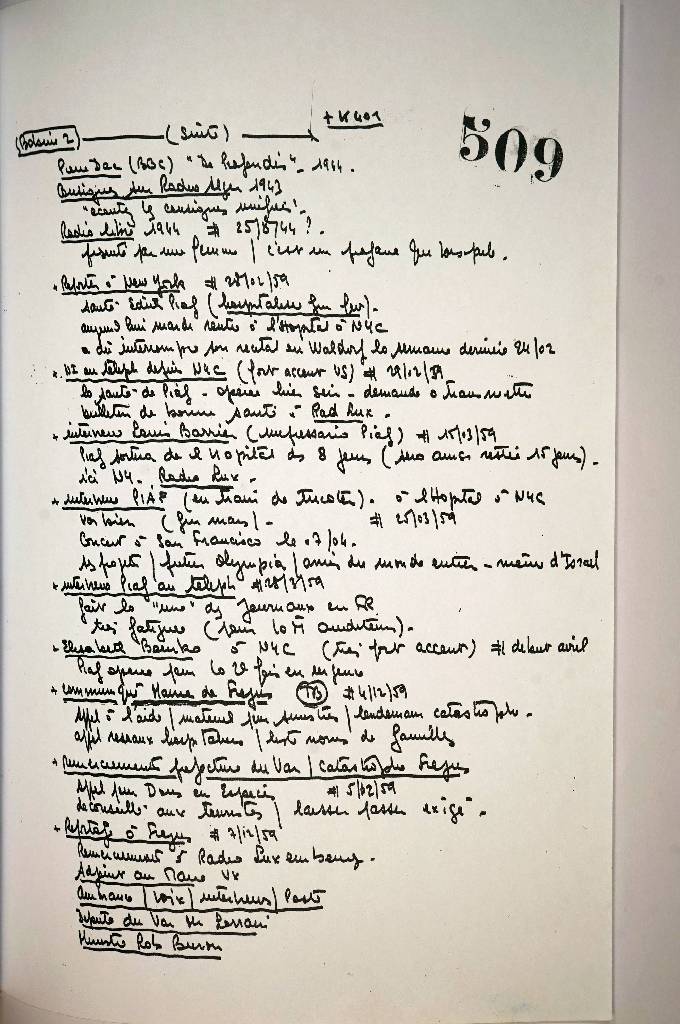 + K 401
509
(Suite)
Pierre Dac (BBC) "De Profundis" - 1944.
Consignes sur Radio Alger 1943
"écoutez les consignes
Radio libre 1944 # 25/8/44 ?
par une femme / c'est un
+ Reporter à New York # 28/02/59
santé Edith Piaf (hospitalisée
aujourd'hui mardi rentre à l'Hopital à NYC
a dû interrompre son recital au Waldorf la semaine dernière 24/02
au téleph depuis NYC (fort accent US) # 29/02/59
la santé de Piaf - opérée hier soir - demande à transmettre
bulletin de bonne santé à Rad Lux.
+ interview Louis Barrier (impressario Piaf) # 15/03/59
Piaf sortira de l'Hopital ds 8 jours ( 15 jours).
ici NY. Radio Lux.
+ interview PIAF (en train de tricoter). à l'Hopital à NYC
va bien # 25/03/59
Concert à San Francisco le 07/04.
ses projets / futur Olympia / amis du monde entier - même d'Israel
+ interview Piaf au téleph # 28/3/59
fait la "une" des Journaux en FR
très fatiguée auditeurs).
+ Elisabeth à NYC (très fort accent) # debut avril
Piaf opérée pour la 2e fois
+ communiqué Mairie de Frejus (TB) # 4/12/59
Appel à l'aide / materiel pour sinistrés / lendemain catastrophe.
appel / noms de familles
+ Remerciements prefecture du Var / catastrophe Frejus
Appel pour Dons en Espèces # 5/02/59
déconseillé aux touristes / laisser passer exigé.
+ Reportage à Frejus # 7/12/59
Remerciement à Radio Luxembourg.
Adjoint au Maire
Ambiance / voix / interviews /
Député du Var Mr
Ministre Rob Buron